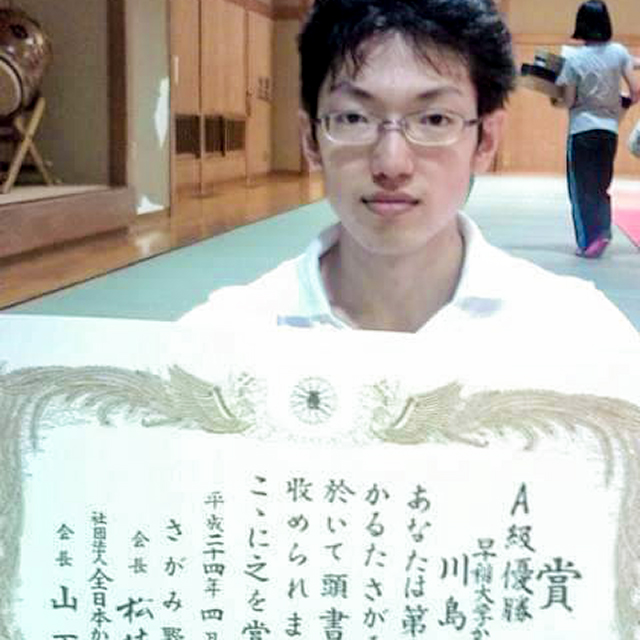 賞
A級優勝
早稲田大学か
川島
あなたは第
かるたさがみ
於いて頭書
収められま
ここに之を賞
平成二十四年四月
さがみ野
会長 松
社団法人全日本か
会長 山下